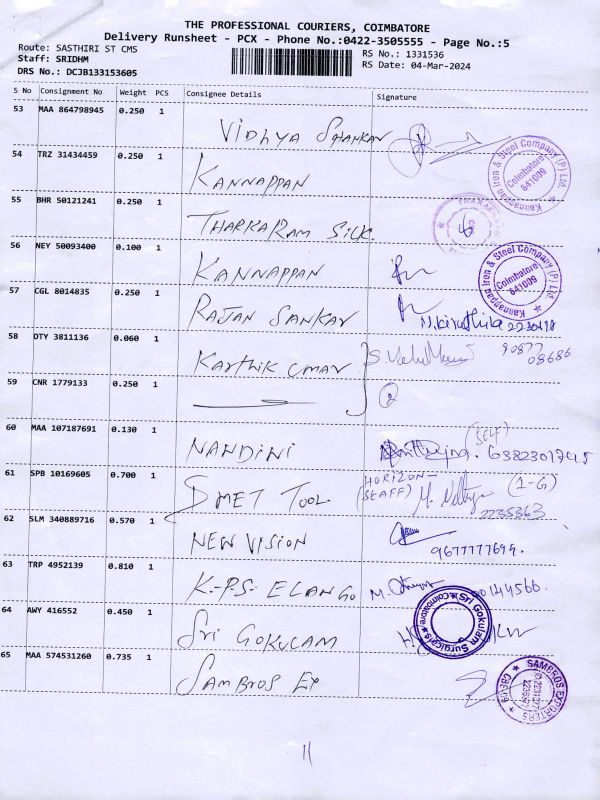 THE PROFESSIONAL COURIERS, COIMBATORE
Delivery Runsheet - PCX - Phone No.:0422-3505555 - Page No.:5
Route: SASTHIRI ST CMS
RS No.: 1331536
Staff: SRIDHM
RS Date: 04-Mar-2024
DRS No.: DCJB133153605
S No Consignment No Weight PCS Consignee Details Signature
53 MAA 864798945 0.250 1 VIDHYA SHANKAR
54 TRZ 31434459 0.250 1 KANNAPPAN
Kannappan Iron & Steel Company (P) Ltd. Coimbatore 641009
55 BHR 50121241 0.250 1 THARKARAM SILK
56 NEY 50093400 0.100 1 KANNAPPAN
Kannappan Iron & Steel Company (P) Ltd. Coimbatore 641009
57 CGL 8014835 0.250 1 RAJAN SANKAR
58 DTY 3811136 0.060 1 Karthik Cumar 90877 08686
59 CNR 1779133 0.250 1 2
60 MAA 107187691 0.130 1 NANDINI (SELF)
61 SPB 10169605 0.700 1 SMET TOOL (HORIZON STAFF) (1-G) 2235363
62 SLM 340889716 0.570 1 NEW VISION
63 TRP 4952139 0.810 1 K.P.S. ELANGO
64 AWY 416552 0.450 1 Sri GOKULAM
Sri Gokulam Surgicals Coimbatore
65 MAA 574531260 0.735 1 SAMBROS EX
SAMBROS EXPORTERS
11